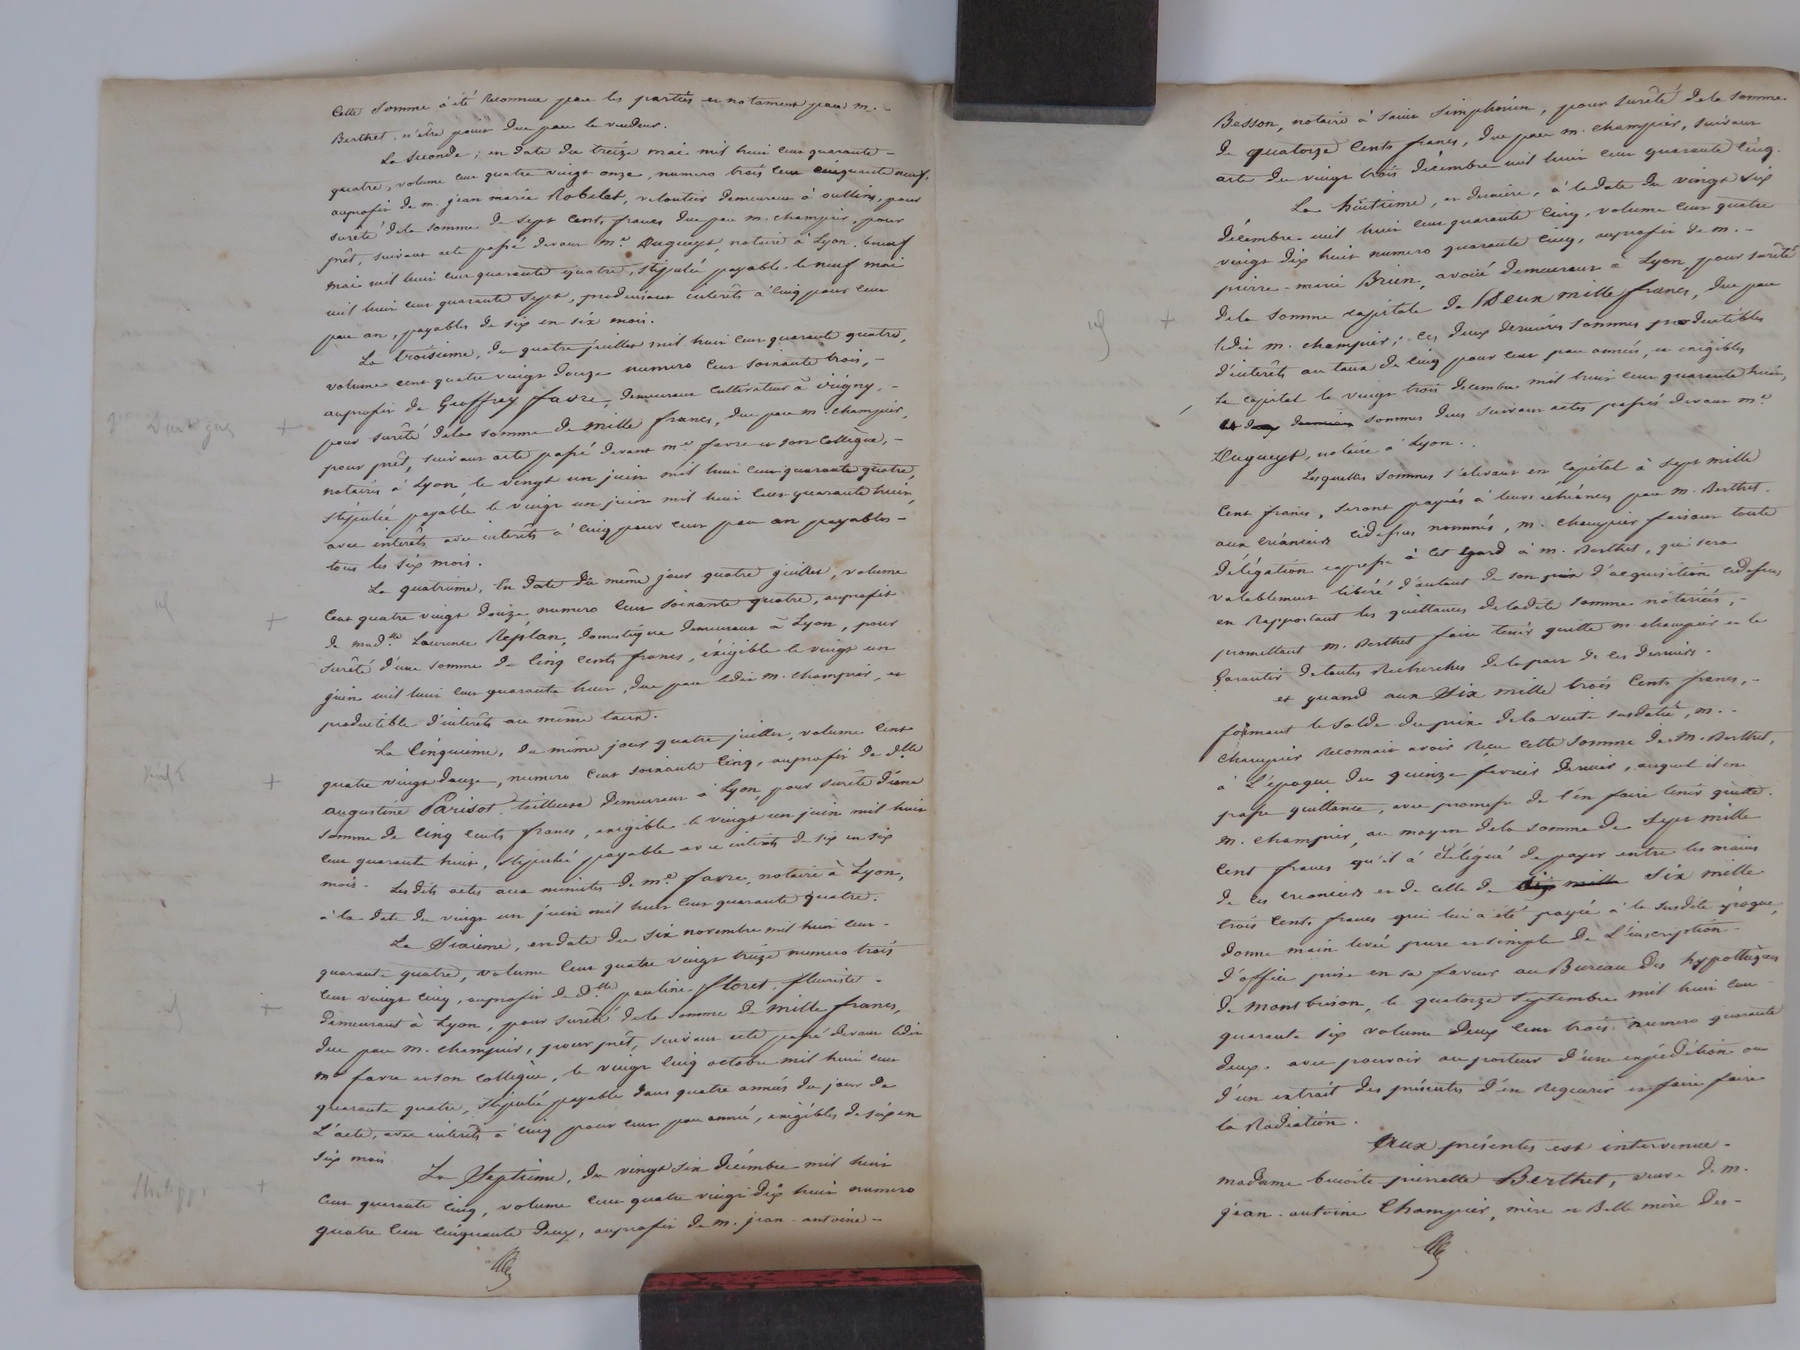 Cette somme a été reconnue par les parties et notament par m.
Berthet, n'être point due par le vendeur.
La seconde, en date du treize mai mil huit cent quarante
quatre, volume cent quatre vingt onze, numero trois cent cinquante neuf,
au profit de m. jean marie Robelet, veloutier demeurant à oullins, pour
sureté de la somme de sept cents francs due par m. champier, pour
prêt, suivant acte passé devant me Dugueyt, notaire à Lyon, le neuf
mai mil huit cent quarante quatre, stipulée payable le neuf mai
mil huit cent quarante sept, produisant intérêts à cinq pour cent
par an, payables de six en six mois.
La troisieme, du quatre juillet mil huit cent quarante quatre,
volume cent quatre vingt douze numero cent soixante trois,
au profit de Geoffrey favre, demeurant cultivateur à irigny,
pour sûrêté de la somme de mille francs, due par m. champier,
pour prêt, suivant acte passé devant me favre et son collègue,
notaires à Lyon, le vingt un juin mil huit cent quarante quatre,
stipulée payable le vingt un juin mil huit cent quarante huit,
avec intérêts avec intérêts à cinq pour cent par an payables
tous les six mois.
La quatrieme, En date du même jour quatre juillet, volume
cent quatre vingt douze, numero cent soixante quatre, au profit
de madlle Laurence Replan, domestique demeurant à Lyon, pour
sureté d'une somme de cinq cents francs, éxigible le vingt un
juin mil huit cent quarante huit, due par ledit m. champier, et
productible d'intérêts au même taux.
La Cinquieme, du même jour quatre juillet, volume cent
quatre vingt douze, numero cent soixante cinq, au profit de dlle
augustine Parisot, tailleuse demeurant à Lyon, pour sureté d'une
somme de cinq cents francs, exigible le vingt un juin mil huit
cent quarante huit, stipulée payable avec intérêts de six en six
mois. Lesdits actes aux minutes de me favre, notaire à Lyon,
à la date du vingt un juin mil huit cent quarante quatre.
La Sixieme, en date du six novembre mil huit cent
quarante quatre, volume cent quatre vingt treize numero trois
cent vingt cinq, au profit de dlle pauline floret, fleuriste
demeurant à Lyon, pour sureté de la somme de mille francs,
due par m. champier, pour prêt, suivant acte passé devant ledit
me favre et son collègue, le vingt cinq octobre mil huit cent
quarante quatre, stipulée payable dans quatre années du jour de
L'acte, avec intérêts à cinq pour cent par année, exigibles de six en
six mois.
La Septieme, du vingt six décembre mil huit
cent quarante cinq, volume cent quatre vingt dix huit numero
quatre cent cinquante deux, au profit de m. jean-antoine
Besson, notaire à saint simphorien, pour sûrêté de la somme
de quatorze cents francs, due par m. champier, suivant
acte du vingt trois décembre mil huit cent quarante cinq.
La huitieme, et derniere, à la date du vingt six
décembre mil huit cent quarante cinq, volume cent quatre
vingt dix huit numero quarante cinq, au profit de m.
pierre-marie Brun, avoué demeurant à Lyon, pour sûrêté
de la somme capitale de Deux mille francs, due par
ledit m. champier; ces deux dernieres sommes productibles
d'intérêts au taux de cinq pour cent par année, et exigibles
Le capital le vingt trois décembre mil huit cent quarante huit,
sommes dues suivant actes passés devant me
Dugueyt, notaire à Lyon.
Lesquelles sommes s'elevant en capital à sept mille
cent francs, seront payées à leurs échéances par m. Berthet
aux créanciers cidessus nommés, m. champier faisant toute
délégation expresse à cet égard à m. Berthet, qui sera
valablement libéré d'autant de son prix d'acquisition cidessus
en rapportant les quittances de ladite somme notariées,
promettant m. Berthet faire tenir quitte m. champier et le
garantir de toutes Recherches de la part de ces derniers.
et quand aux Six mille trois Cents francs,
formant le solde du prix de la vente susdatée, m.
champier reconnait avoir reçu cette somme de M. Berthet,
à L'époque du quinze fevrier dernier, auquel il en
passe quittance, avec promesse de l'en faire tenir quitte.
m. champier, au moyen de la somme de sept mille
cent francs qu'il a délégué de payer entre les mains
de ces creanciers et de celle de dix mille Six mille
trois cents francs qui lui a été payée à la susdite époque,
donne main levée pure et simple de L'inscription
d'office prise en sa faveur au Bureau des hypothèques
de montbrison, le quatorze septembre mil huit cent
quarante six volume deux cent trois numero quarante
deux, avec pouvoir au porteur d'une expédition ou
d'un extrait des présentes d'en requerir et faire faire
la Radiation.
Aux présentes est intervenue
madame benoite pierrette Berthet, veuve de m.
jean-antoine Champier, mère et Belle mère des